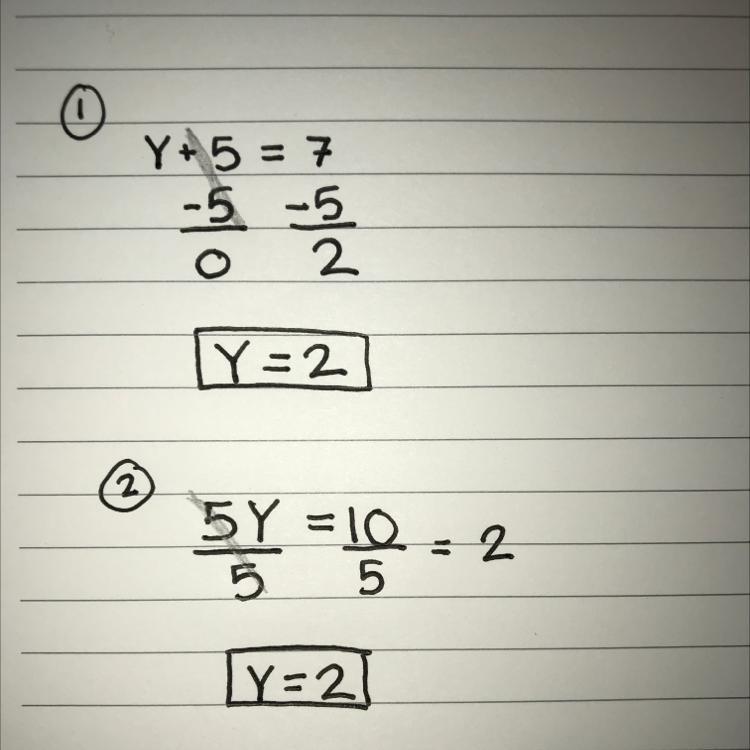 ①
Y + 5 = 7
-5 -5
0 2
Y = 2
②
5Y = 10 = 2
5 5
Y = 2